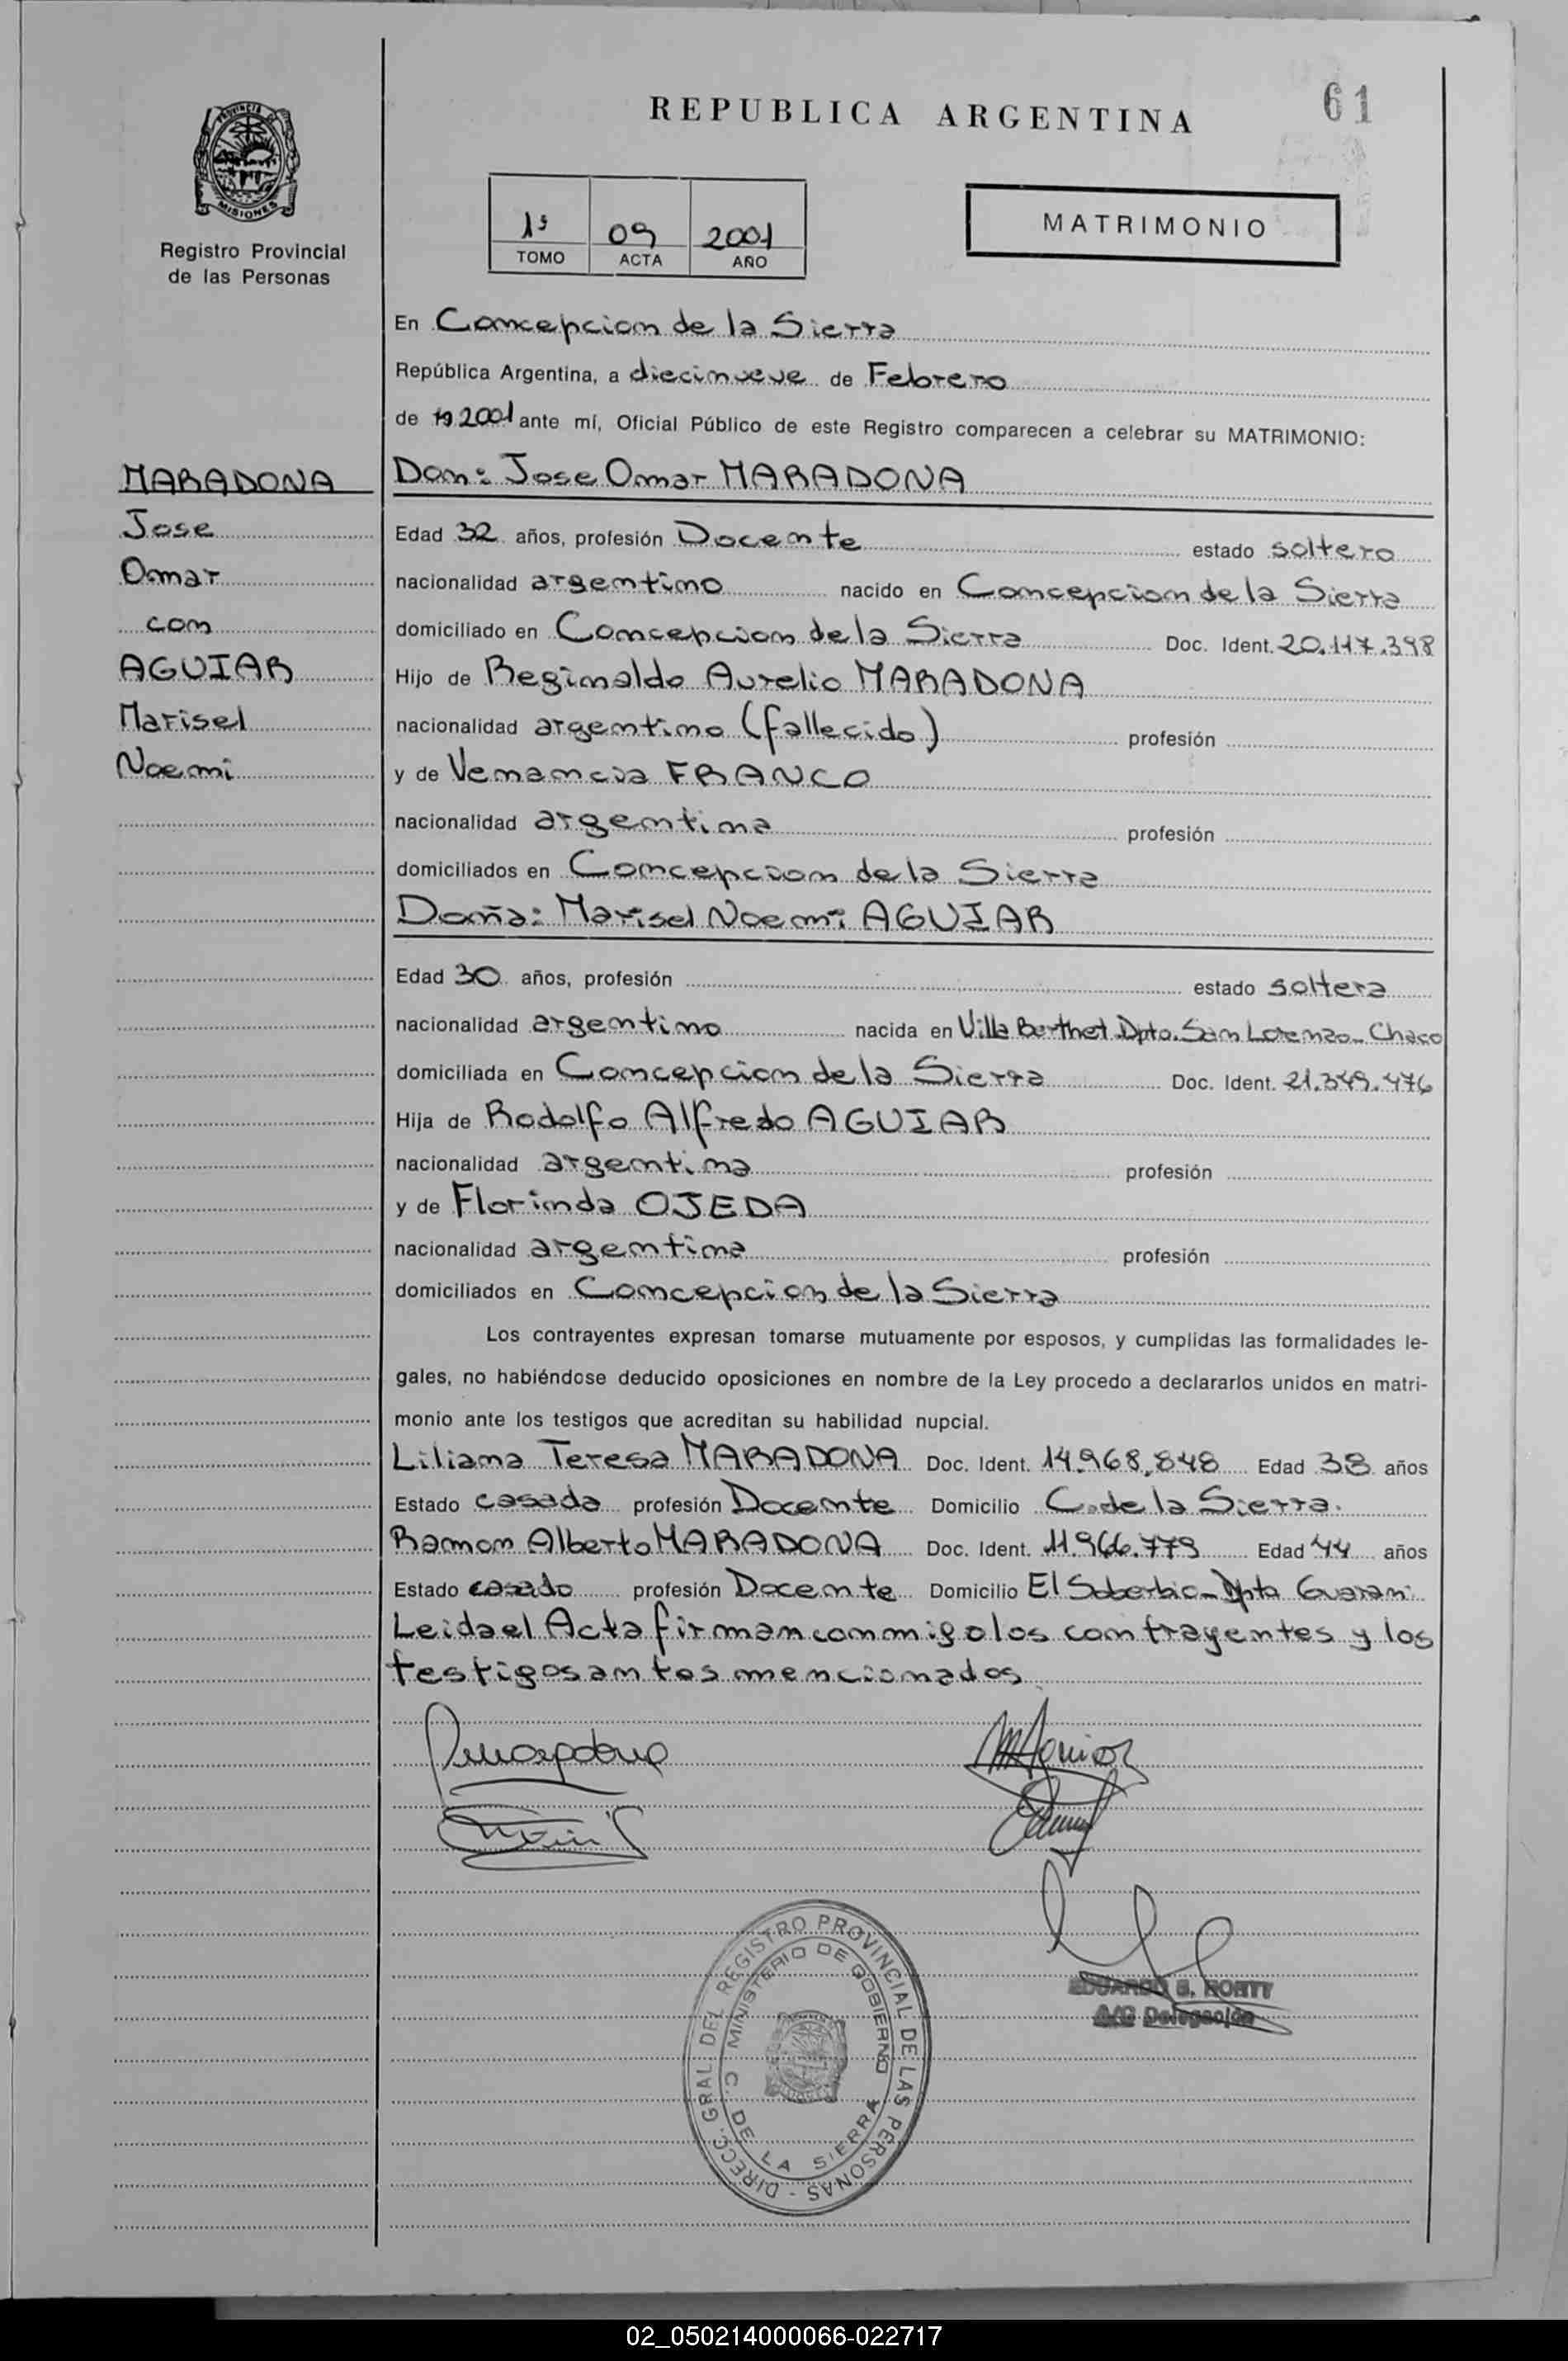 REPUBLICA ARGENTINA
61
PROVINCIA DE
MISIONES
Registro Provincial
de las Personas
1º 09 2001
TOMO ACTA AÑO
MATRIMONIO
En Concepcion de la Sierra
República Argentina, a diecinueve de Febrero
de 19 2001 ante mí, Oficial Público de este Registro comparecen a celebrar su MATRIMONIO:
MARADONA
Don: Jose Omar MARADONA
Jose
Edad 32 años, profesión Docente estado soltero
Omar
nacionalidad argentino nacido en Concepcion de la Sierra
con
domiciliado en Concepcion de la Sierra Doc. Ident. 20.117.398
AGUIAR
Hijo de Reginaldo Aurelio MARADONA
Marisel
nacionalidad argentino (fallecido) profesión
Noemi
y de Venancia FRANCO
nacionalidad argentina profesión
domiciliados en Concepcion de la Sierra
Doña: Marisel Noemi AGUIAR
Edad 30 años, profesión estado soltera
nacionalidad argentino nacida en Villa Berthet Dpto. San Lorenzo - Chaco
domiciliada en Concepcion de la Sierra Doc. Ident. 21.349.476
Hija de Rodolfo Alfredo AGUIAR
nacionalidad argentina profesión
y de Florinda OJEDA
nacionalidad argentina profesión
domiciliados en Concepcion de la Sierra
Los contrayentes expresan tomarse mutuamente por esposos, y cumplidas las formalidades le-
gales, no habiéndose deducido oposiciones en nombre de la Ley procedo a declararlos unidos en matri-
monio ante los testigos que acreditan su habilidad nupcial.
Liliana Teresa MARADONA Doc. Ident. 14.968.848 Edad 38 años
Estado casada profesión Docente Domicilio C. de la Sierra.
Ramon Alberto MARADONA Doc. Ident. 11.966.779 Edad 44 años
Estado casado profesión Docente Domicilio El Soberbio - Dpto Guarani
Leida el Acta firman conmigo los contrayentes y los
testigos antes mencionados
DIRECC. GRAL. DEL REGISTRO PROVINCIAL DE LAS PERSONAS -
MINISTERIO DE GOBIERNO
C. DE LA SIERRA
EDUARDO
A/C Delegación
02_050214000066-022717